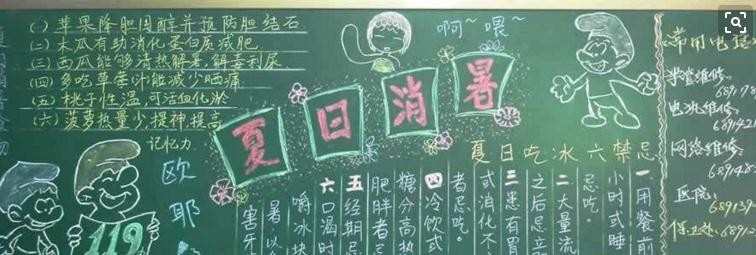 (一) 苹果降胆固醇并预防胆结石
(二) 木瓜有助消化蛋白质减肥
(三) 西瓜能够清热解暑,解毒利尿
(四) 多吃草莓 能减少晒痛
(五) 桃子性温,可活血化淤
(六) 菠萝热量少,提神,提高
记忆力
啊~喂~
夏日消暑
欧
耶
119
夏日吃冰六禁忌
一用餐前
小时或睡
忌吃。
二大量流
之后忌立
三患有胃
或消化不
者忌吃。
四冷饮或
糖分高热
肥胖者忌
五经期忌
六口渴时
嚼冰块
暑,以
害牙
常用电话
电池维修:
网络维修:
医院: